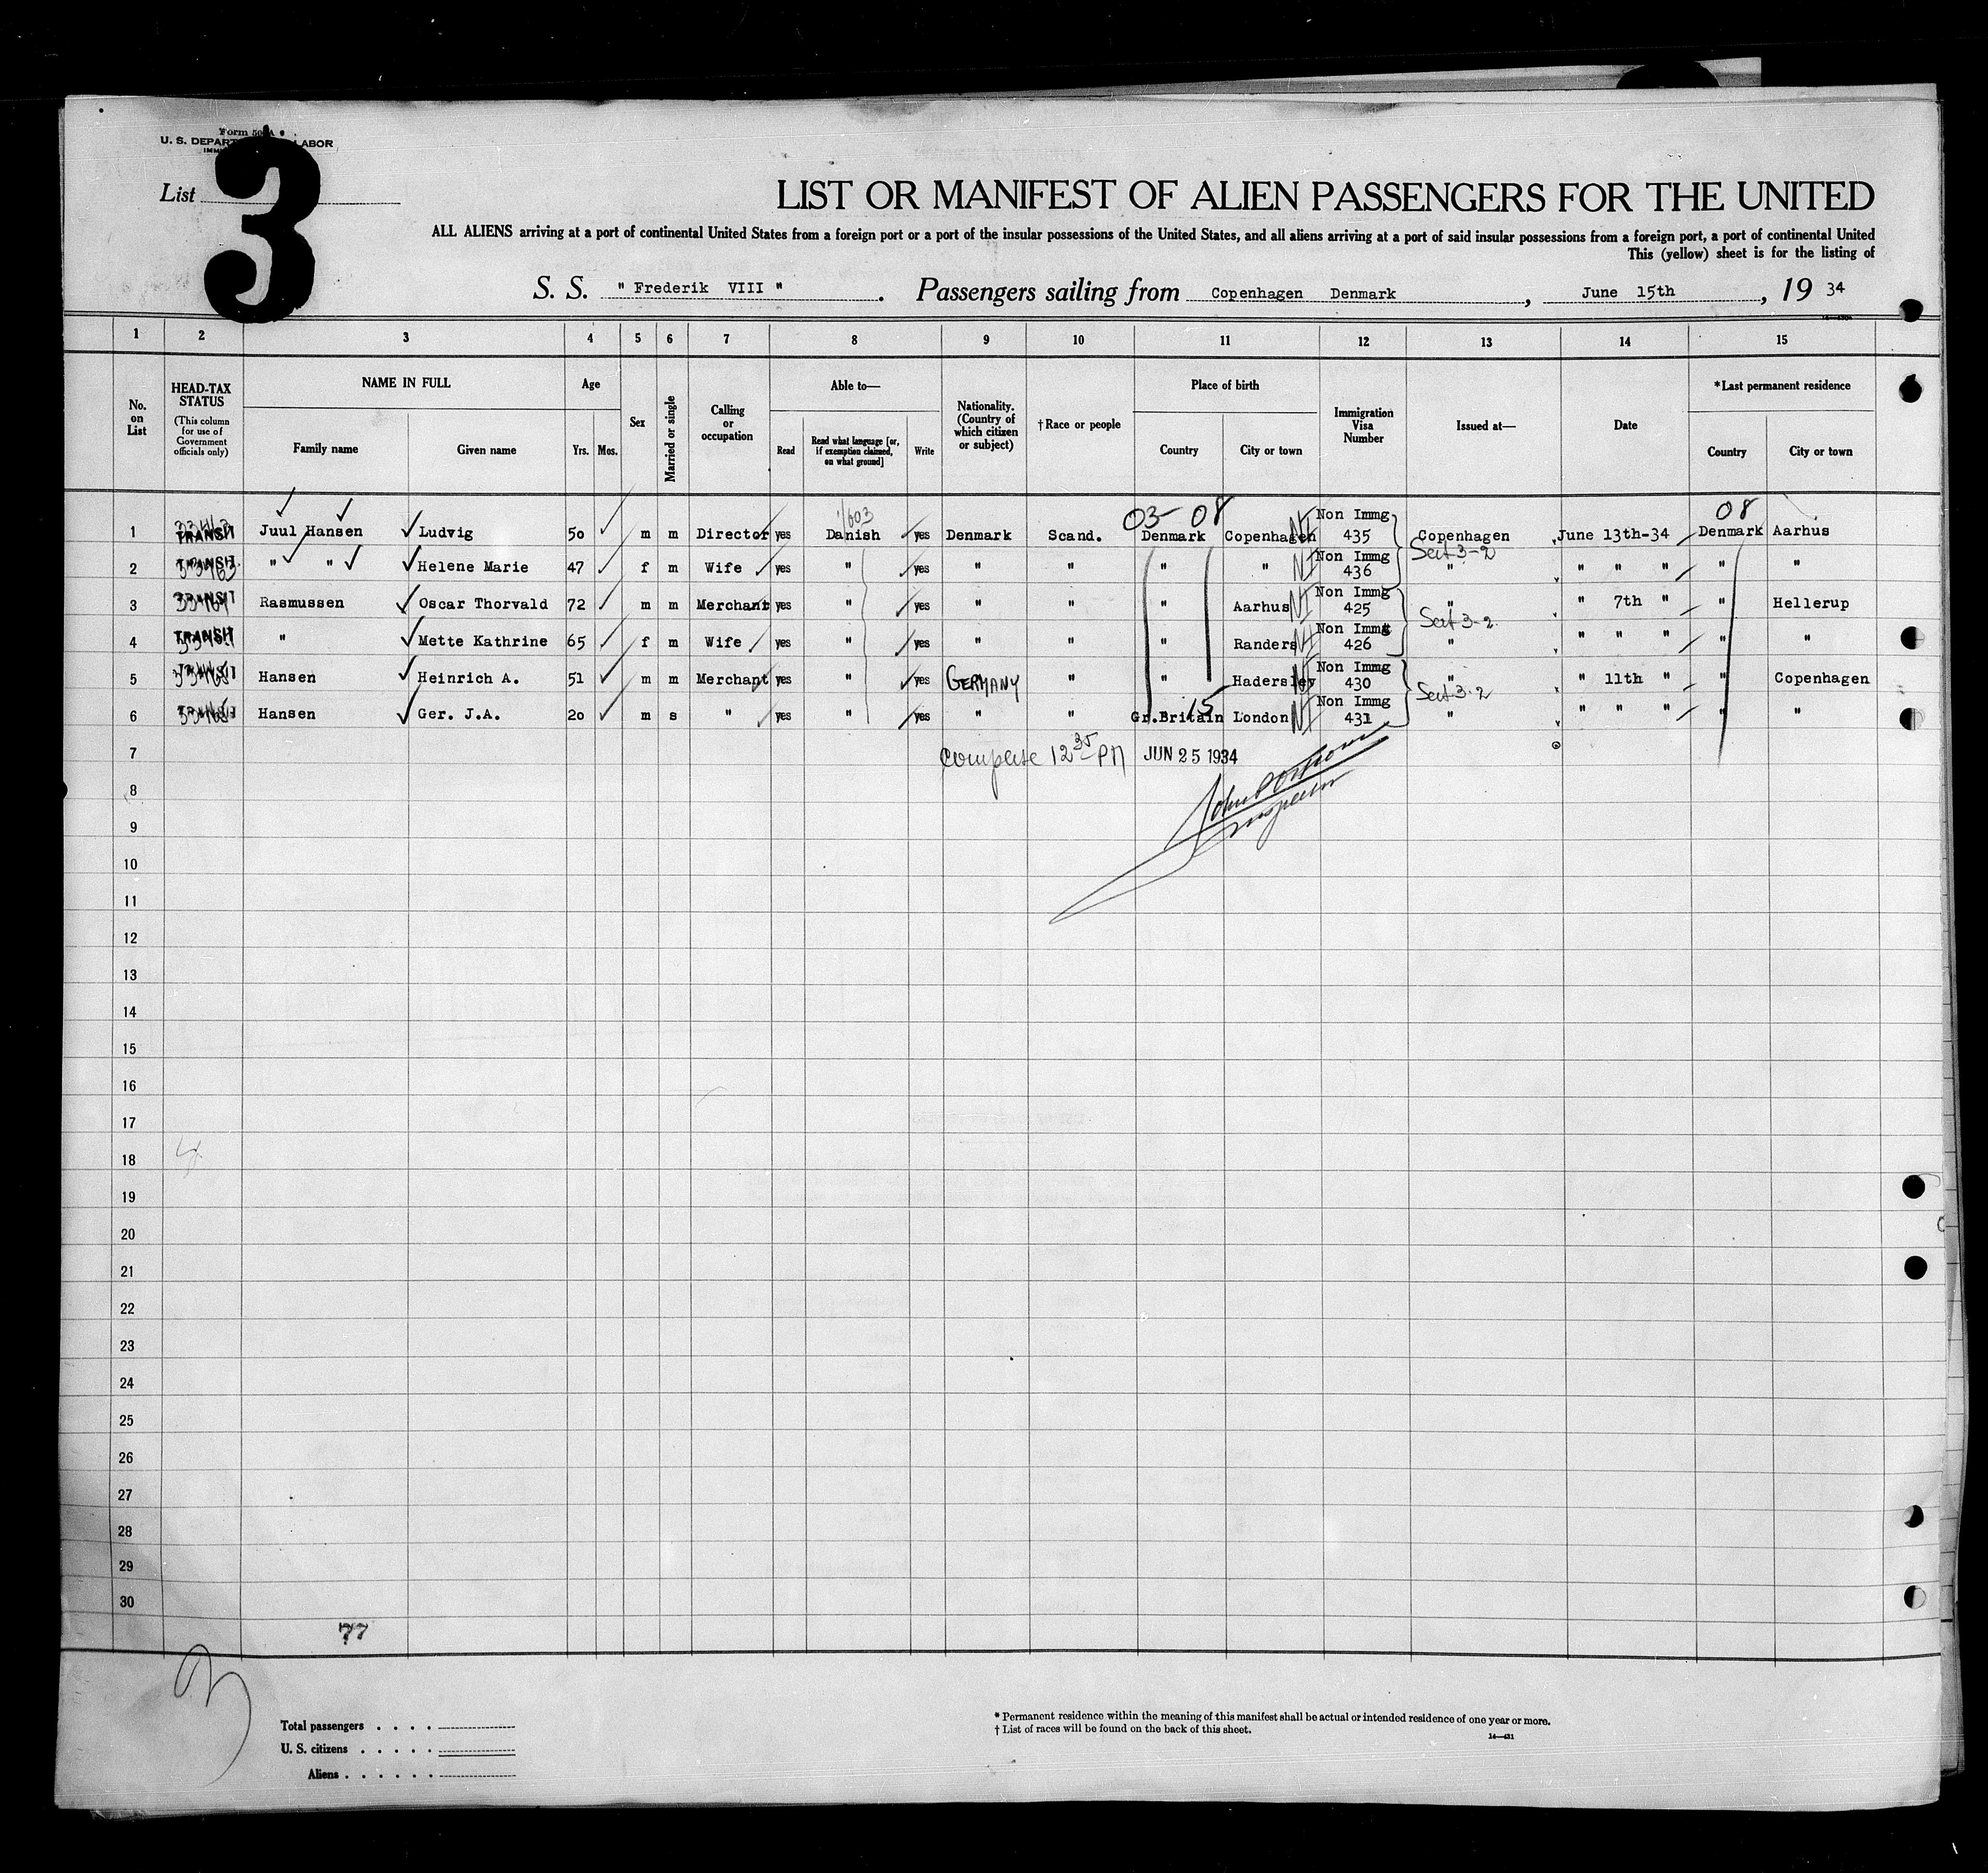 Form 500 A
U. S. DEPART LABOR
List 3
LIST OR MANIFEST OF ALIEN PASSENGERS FOR THE UNITED
ALL ALIENS arriving at a port of continental United States from a foreign port or a port of the insular possessions of the United States, and all aliens arriving at a port of said insular possessions from a foreign port, a port of continental United
This (yellow) sheet is for the listing of
S. S. " Frederik VIII " . Passengers sailing from Copenhagen Denmark , June 15th , 19 34
1 2 3 4 5 6 7 8 9 10 11 12 13 14 15
No. on List
HEAD-TAX STATUS
(This column for use of Government officials only)
NAME IN FULL
Family name Given name
Age
Yrs. Mos.
Sex
Married or single
Calling or occupation
Able to—
Read
Read what language [or, if exemption claimed, on what ground]
Write
Nationality. (Country of which citizen or subject)
† Race or people
Place of birth
Country City or town
Immigration Visa Number
Issued at—
Date
* Last permanent residence
Country City or town
1/603 03- 08 08
1 TRANSIT Juul Hansen Ludvig 50 m m Director yes Danish yes Denmark Scand. Denmark Copenhagen NI Non Immg 435 Copenhagen June 13th-34 Denmark Aarhus
Sect 3-2
2 TRANSIT " " Helene Marie 47 f m Wife yes " yes " " " " NI Non Immg 436 " " " " " "
3 TRANSIT Rasmussen Oscar Thorvald 72 m m Merchant yes " yes " " " Aarhus NI Non Immg 425 " " 7th " " Hellerup
Sect 3-2
4 TRANSIT " Mette Kathrine 65 f m Wife yes " yes " " " Randers NI Non Immg 426 " " " " " "
5 TRANSIT Hansen Heinrich A. 51 m m Merchant yes " yes GERMANY " " Hadersley NI Non Immg 430 " " 11th " " Copenhagen
Sect 3-2
15
6 TRANSIT Hansen Ger. J.A. 20 m s " yes " yes " " Gr.Britain London NI Non Immg 431 " " " " " "
7 12 35 PM JUN 25 1934
8
Inspector
9
10
11
12
13
14
15
16
17
18
19
20
21
22
23
24
25
26
27
28
29
30
77
Total passengers . . . .
U. S. citizens . . . . .
Aliens . . . . . .
* Permanent residence within the meaning of this manifest shall be actual or intended residence of one year or more.
† List of races will be found on the back of this sheet.
14—431